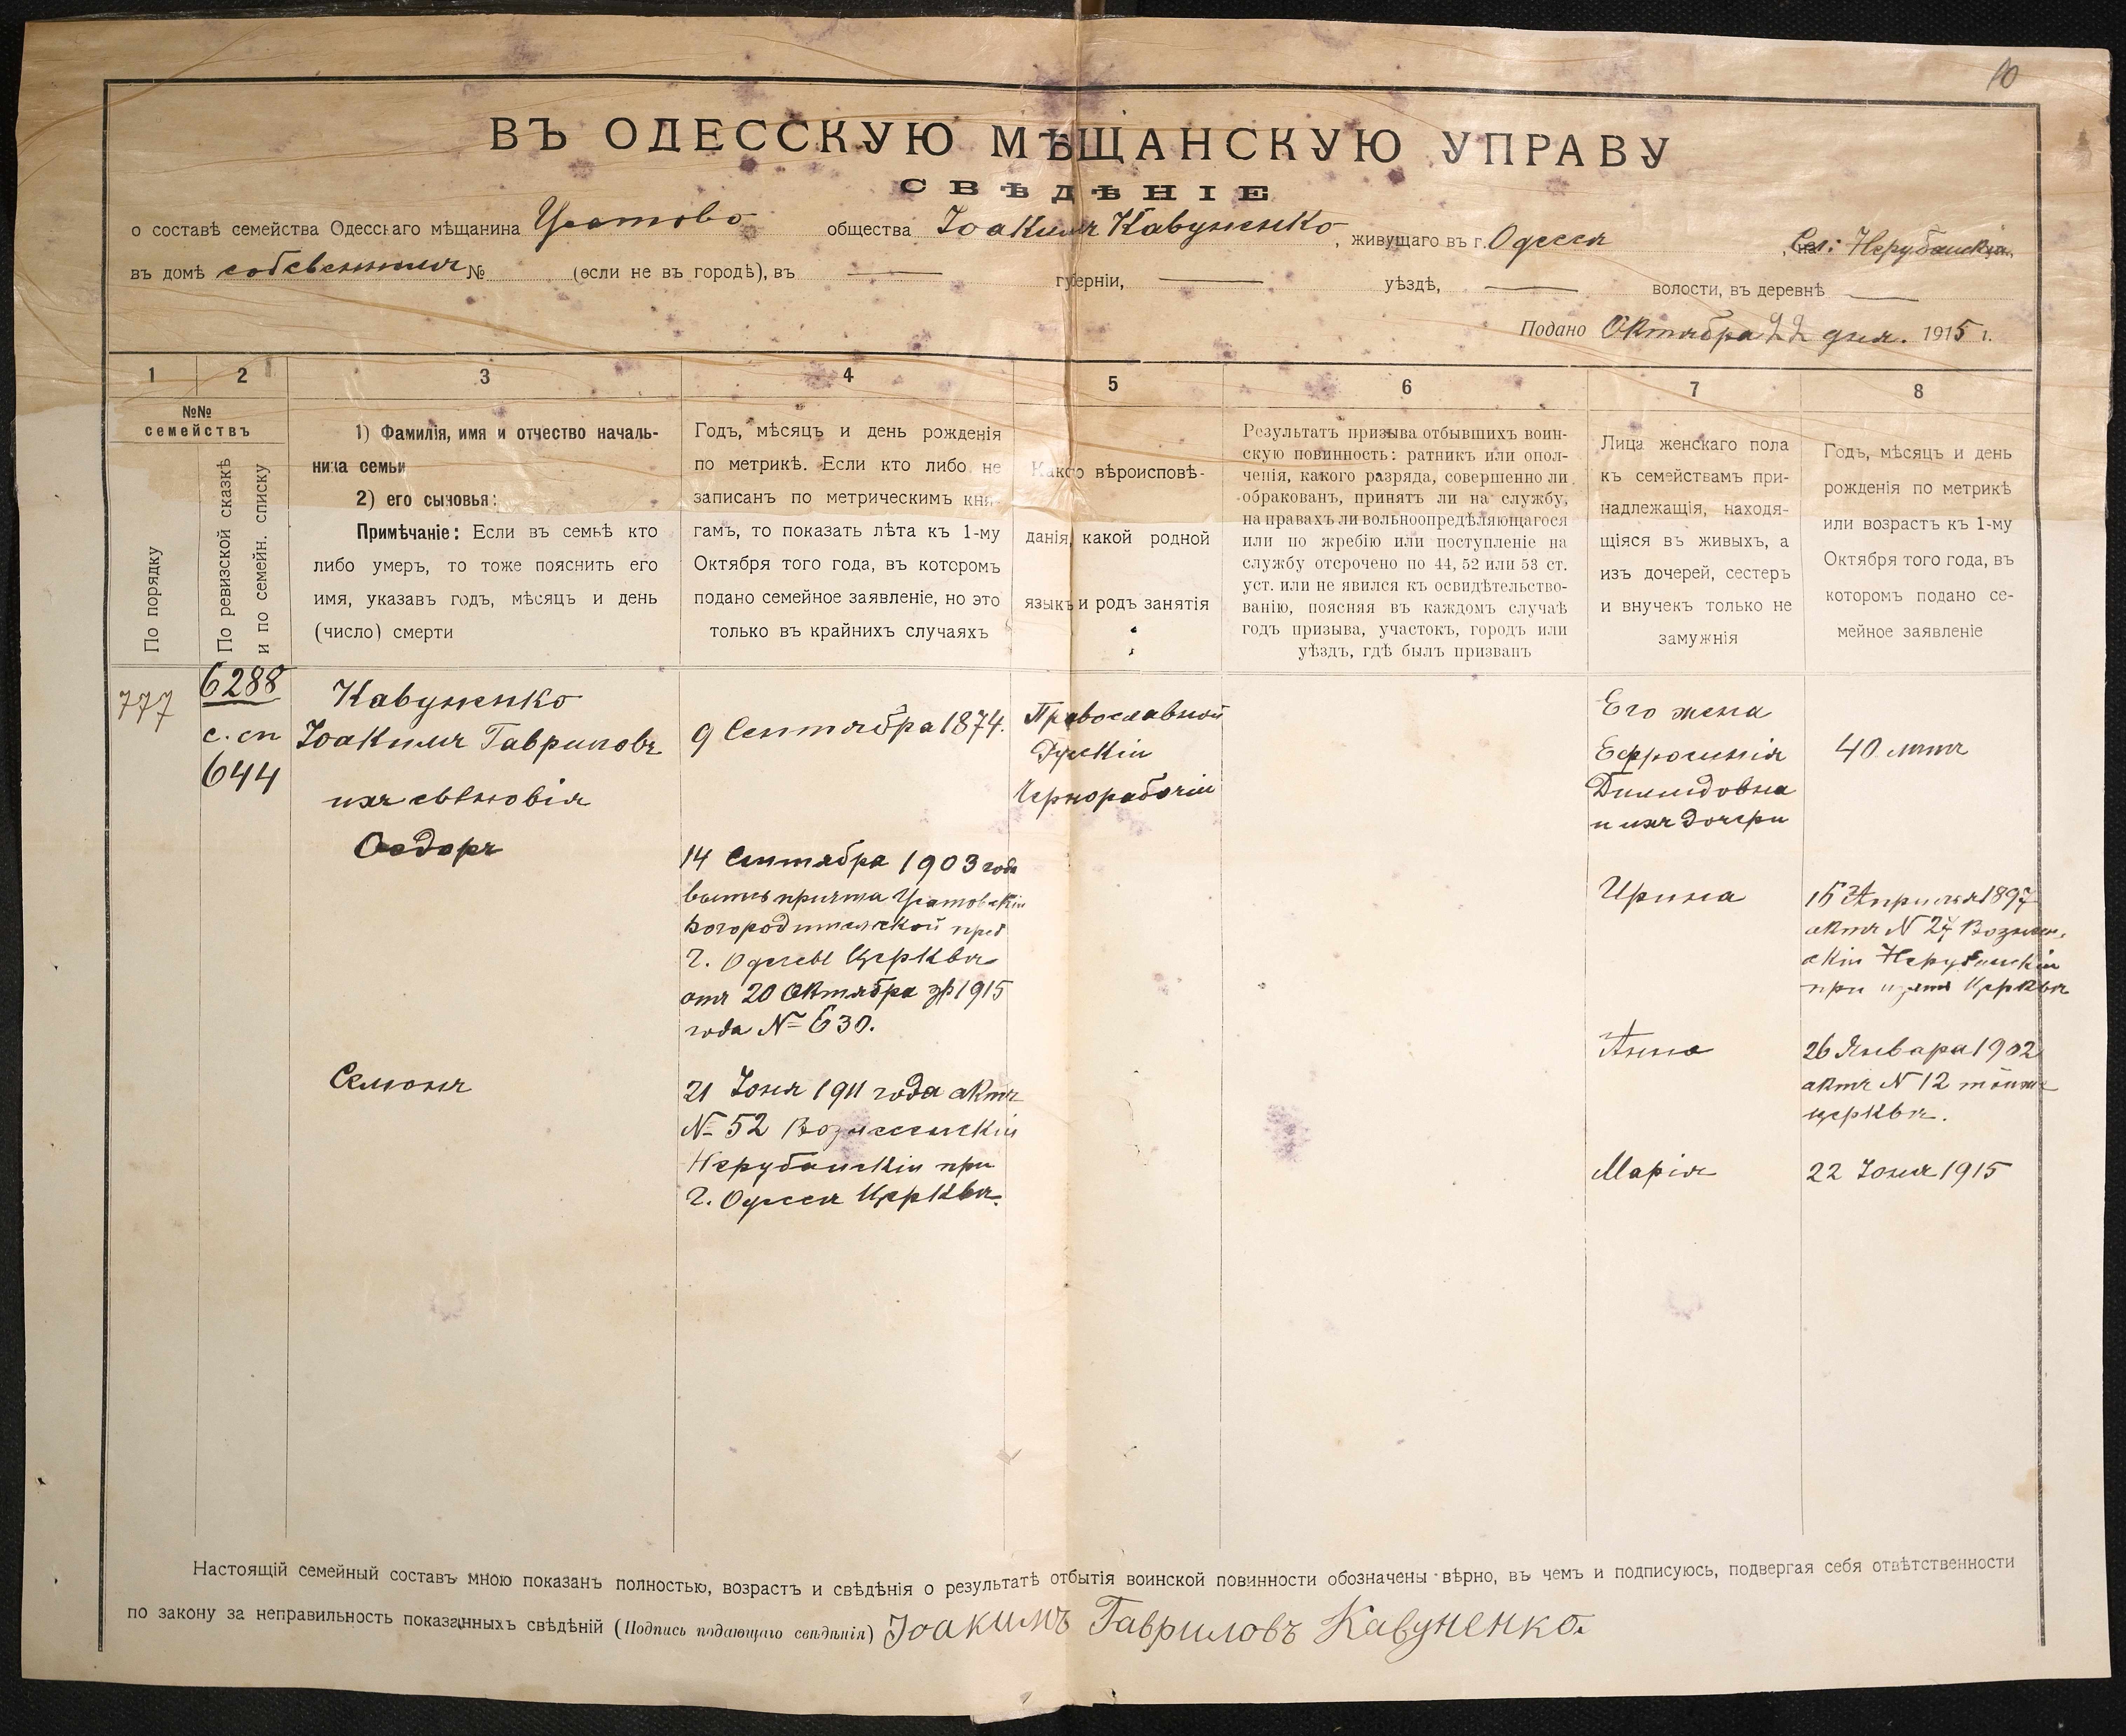 10
ВЪ ОДЕССКУЮ МѢЩАНСКУЮ УПРАВУ
СВѢДѢНІЕ
о составѣ семейства Одесскаго мѣщанина Усатово общества Іоакимъ Кавуненко, живущаго въ г. Одесса, на Сел: Нерубайскія
въ домѣ собсвеннымъ № (если не въ городѣ), въ — губерніи, — уѣздѣ, — волости, въ деревнѣ —
Подано Октября 22 дня. 1915 г.
1 2 3 4 5 6 7 8
№№
семействъ
По порядку
По ревизской сказкѣ
и по семейн. списку
1) Фамилія, имя и отчество началь-
ника семьи
2) его сыновья:
Примѣчаніе: Если въ семьѣ кто
либо умеръ, то тоже пояснить его
имя, указавъ годъ, мѣсяцъ и день
(число) смерти
Годъ, мѣсяцъ и день рожденія
по метрикѣ. Если кто либо не
записанъ по метрическимъ кни-
гамъ, то показать лѣта къ 1-му
Октября того года, въ которомъ
подано семейное заявленіе, но это
только въ крайнихъ случаяхъ
Какого вѣроисповѣ-
данія, какой родной
языкъ и родъ занятія
Результатъ призыва отбывшихъ воин-
скую повинность: ратникъ или опол-
ченія, какого разряда, совершенно ли
обракованъ, принятъ ли на службу,
на правахъ ли вольноопредѣляющагося
или по жребію или поступленіе на
службу отсрочено по 44, 52 или 53 ст.
уст. или не явился къ освидѣтельство-
ванію, поясняя въ каждомъ случаѣ
годъ призыва, участокъ, городъ или
уѣздъ, гдѣ былъ призванъ
Лица женскаго пола
къ семействамъ при-
надлежащія, находя-
щіяся въ живыхъ, а
изъ дочерей, сестеръ
и внучекъ только не
замужнія
Годъ, мѣсяцъ и день
рожденія по метрикѣ
или возрастъ къ 1-му
Октября того года, въ
которомъ подано се-
мейное заявленіе
777
6288
с. сп
644
Кавуненко
Іоакимъ Гавриловъ
ихъ сыновія
Ѳедоръ
Семонъ
9 Сентября 1874.
14 Сентября 1903 года
Усатовскіи
Богородительской при
г. Одессы Церквы
отъ 20 Октября 1915
года № 630.
21 Іоня 1911 года актъ
№ 52 Вознесенскіи
Нерубайскіи при
г. Одесса Церква.
Православной
Рускіи
Чернорабочіи
Его жена
Ефросинія
Димидовна
и ихъ дочери
Ирина
Анна
Марія
40 летъ
15 Апрѣля 1897
актъ № 24 Вознесен-
скіи Нерубайскіи
при Церквы
26 Января 1902
актъ № 12 тойже
церквы.
22 Іоня 1915
Настоящій семейный составъ мною показанъ полностью, возрастъ и свѣдѣнія о результатѣ отбытія воинской повинности обозначены вѣрно, въ чемъ и подписуюсь, подвергая себя отвѣтственности
по закону за неправильность показанныхъ свѣдѣній (Подпись подающаго свѣдѣнія) Іоакимъ Гавриловъ Кавуненко.